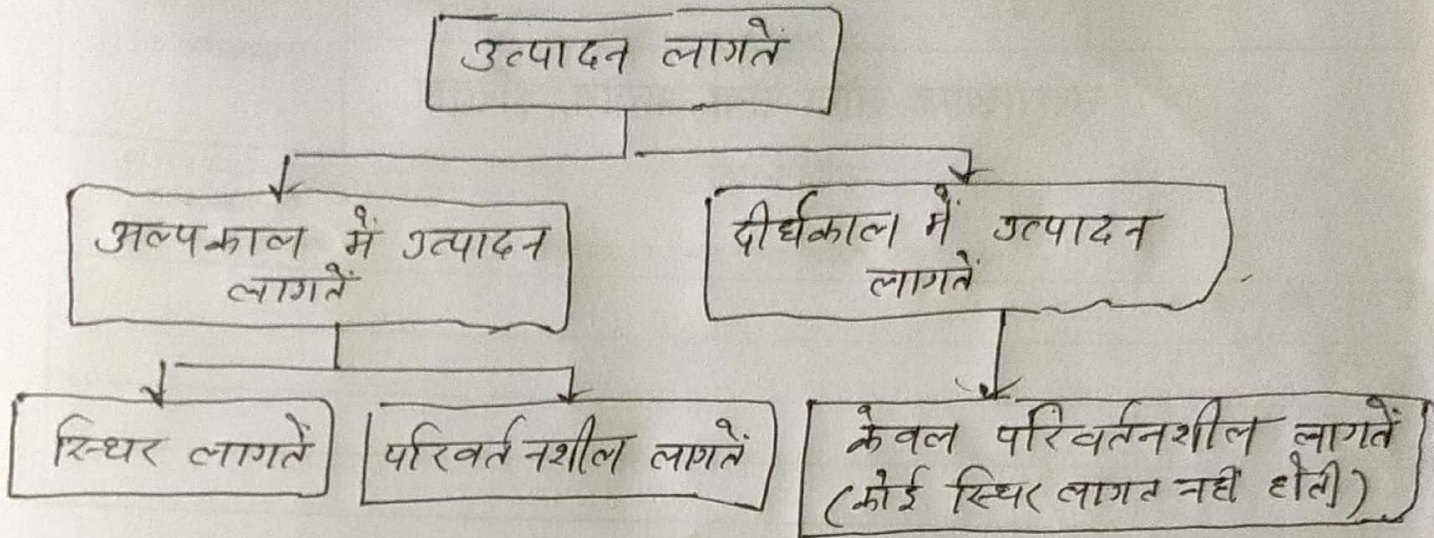 उत्पादन लागतें
अल्पकाल में उत्पादन
लागतें
दीर्घकाल में उत्पादन
लागतें
स्थिर लागतें
परिवर्तनशील लागतें
केवल परिवर्तनशील लागतें
(कोई स्थिर लागत नहीं होती)